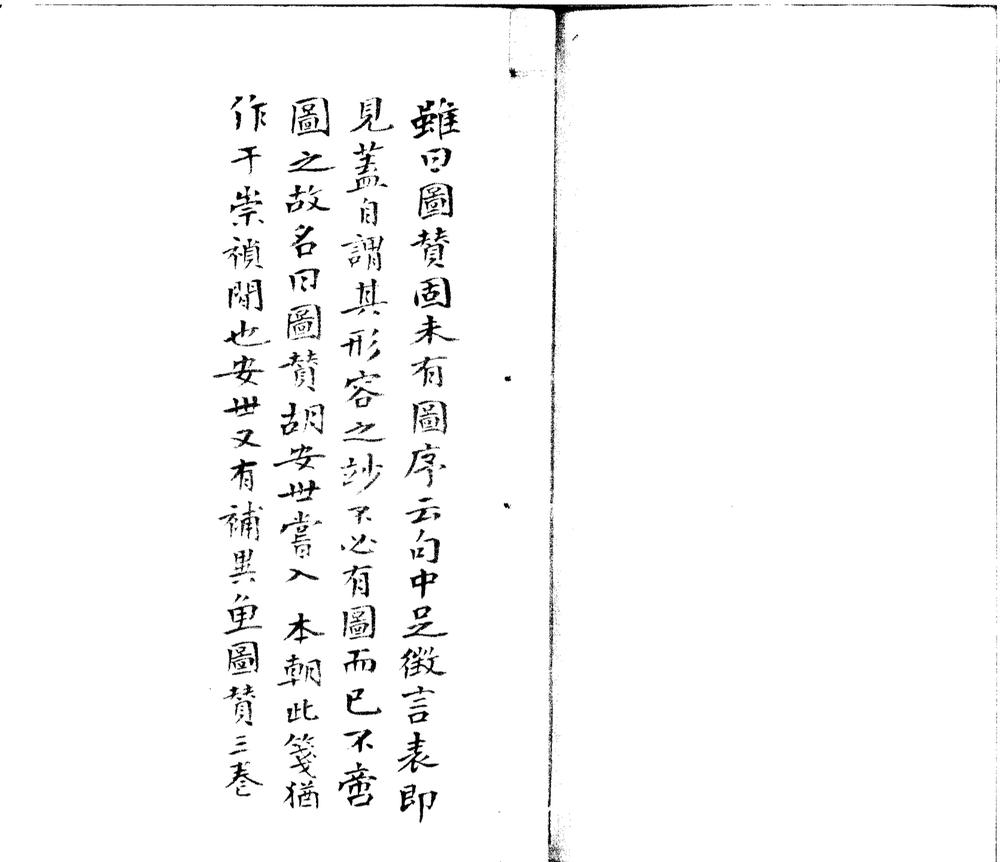 雖曰圖賛固未有圖序云句中足徴言表即
見蓋自謂其形容之玅不必有圖而已不啻
圖之故名曰圖賛胡安世嘗入 本朝此箋猶
作于崇禎閒也安世又有補異魚圖賛三卷